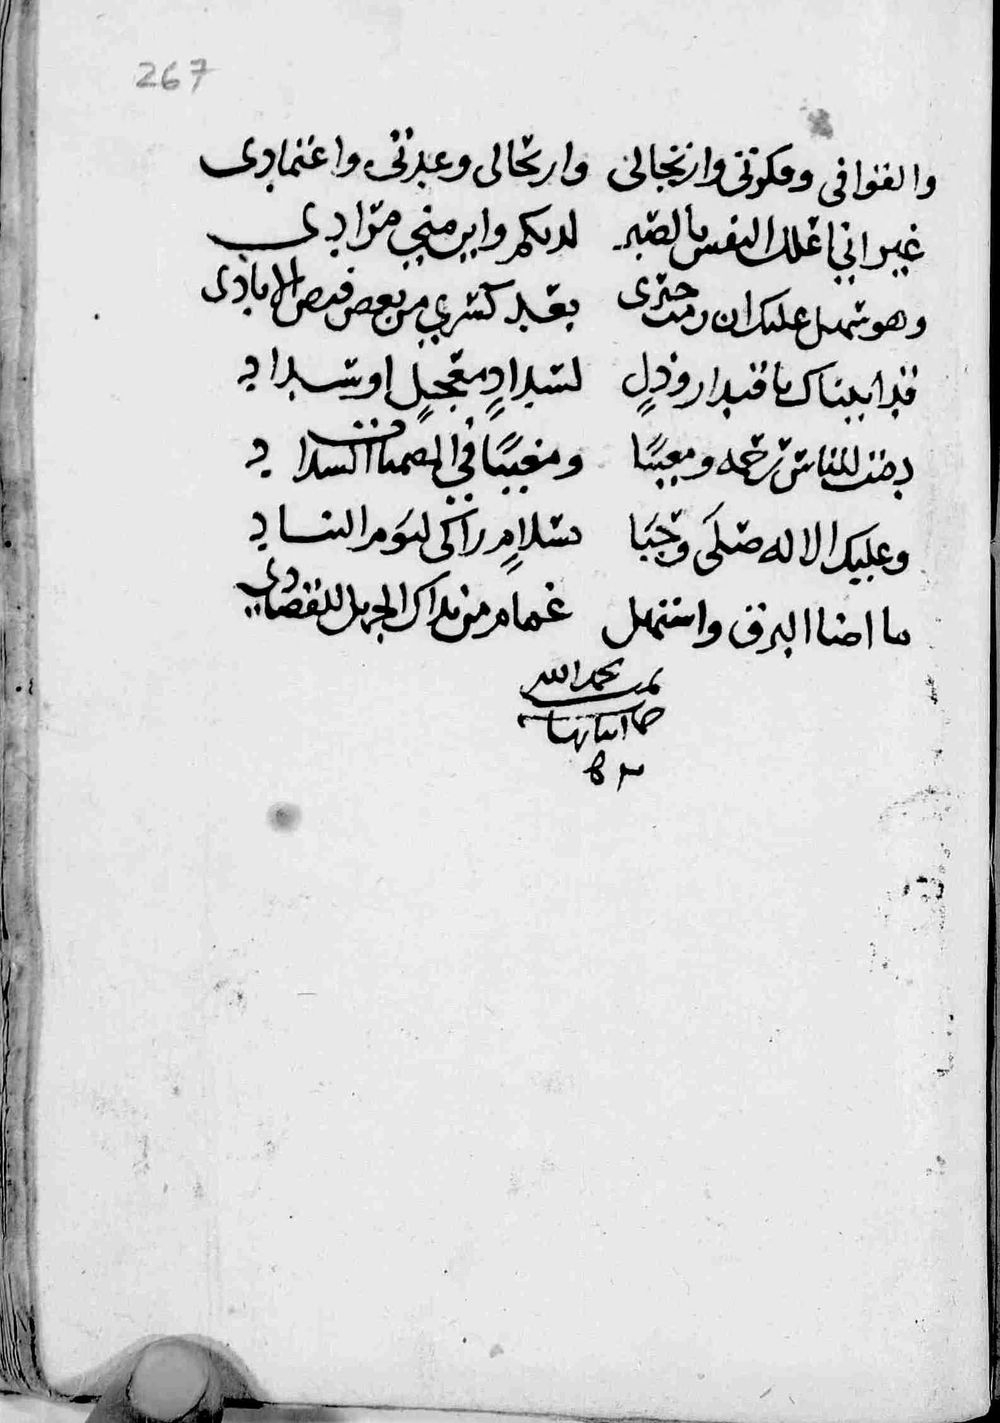 267
والقوافي وفكرتي وارتجالى وارتحالى وعدتى واعتمادى
غير اني اعلل النفس بالصبر لديكم واين مني مرادي
وهو سهل عليك ان رمت جبرى بعد كسري من بعض فيض الايادى
قد اتيناك باقتدار وذل لسداد معجل او سداد
دمت للناس رحمه ومعينا ومغيثا في السداد
وعليك الاله صلى وحيا بسلام زاكى ليوم التناد
ما اضا البرق واستهل غمام من نداك الجزيل للقصادى
تمت بحمد الله